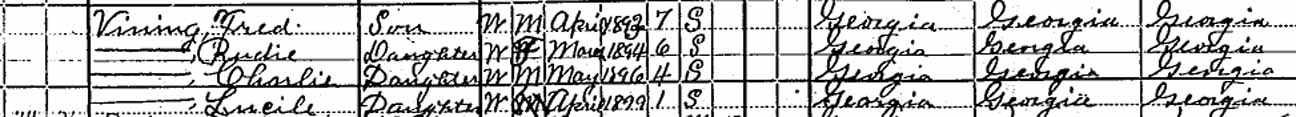 Vining, Fred. Son W M April 1892 7 S Georgia Georgia Georgia
———, Rudie Daughter W F May 1894 6 S Georgia Georgia Georgia
———, Charlie Daughter W M May 1896 4 S Georgia Georgia Georgia
———, Lucile Daughter W. April 1899 1 S Georgia Georgia Georgia